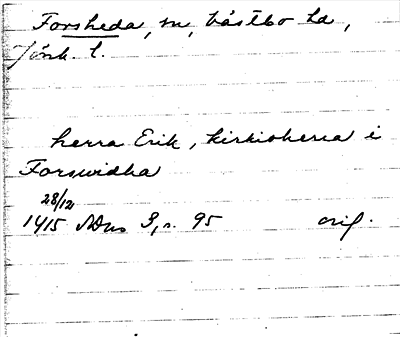 Forsheda, sn, Västbo hd,
Jönk. l.
herra Erik, kirkioherra i
Forswidha
28/12
1415 SDns 3, s. 95 orig.